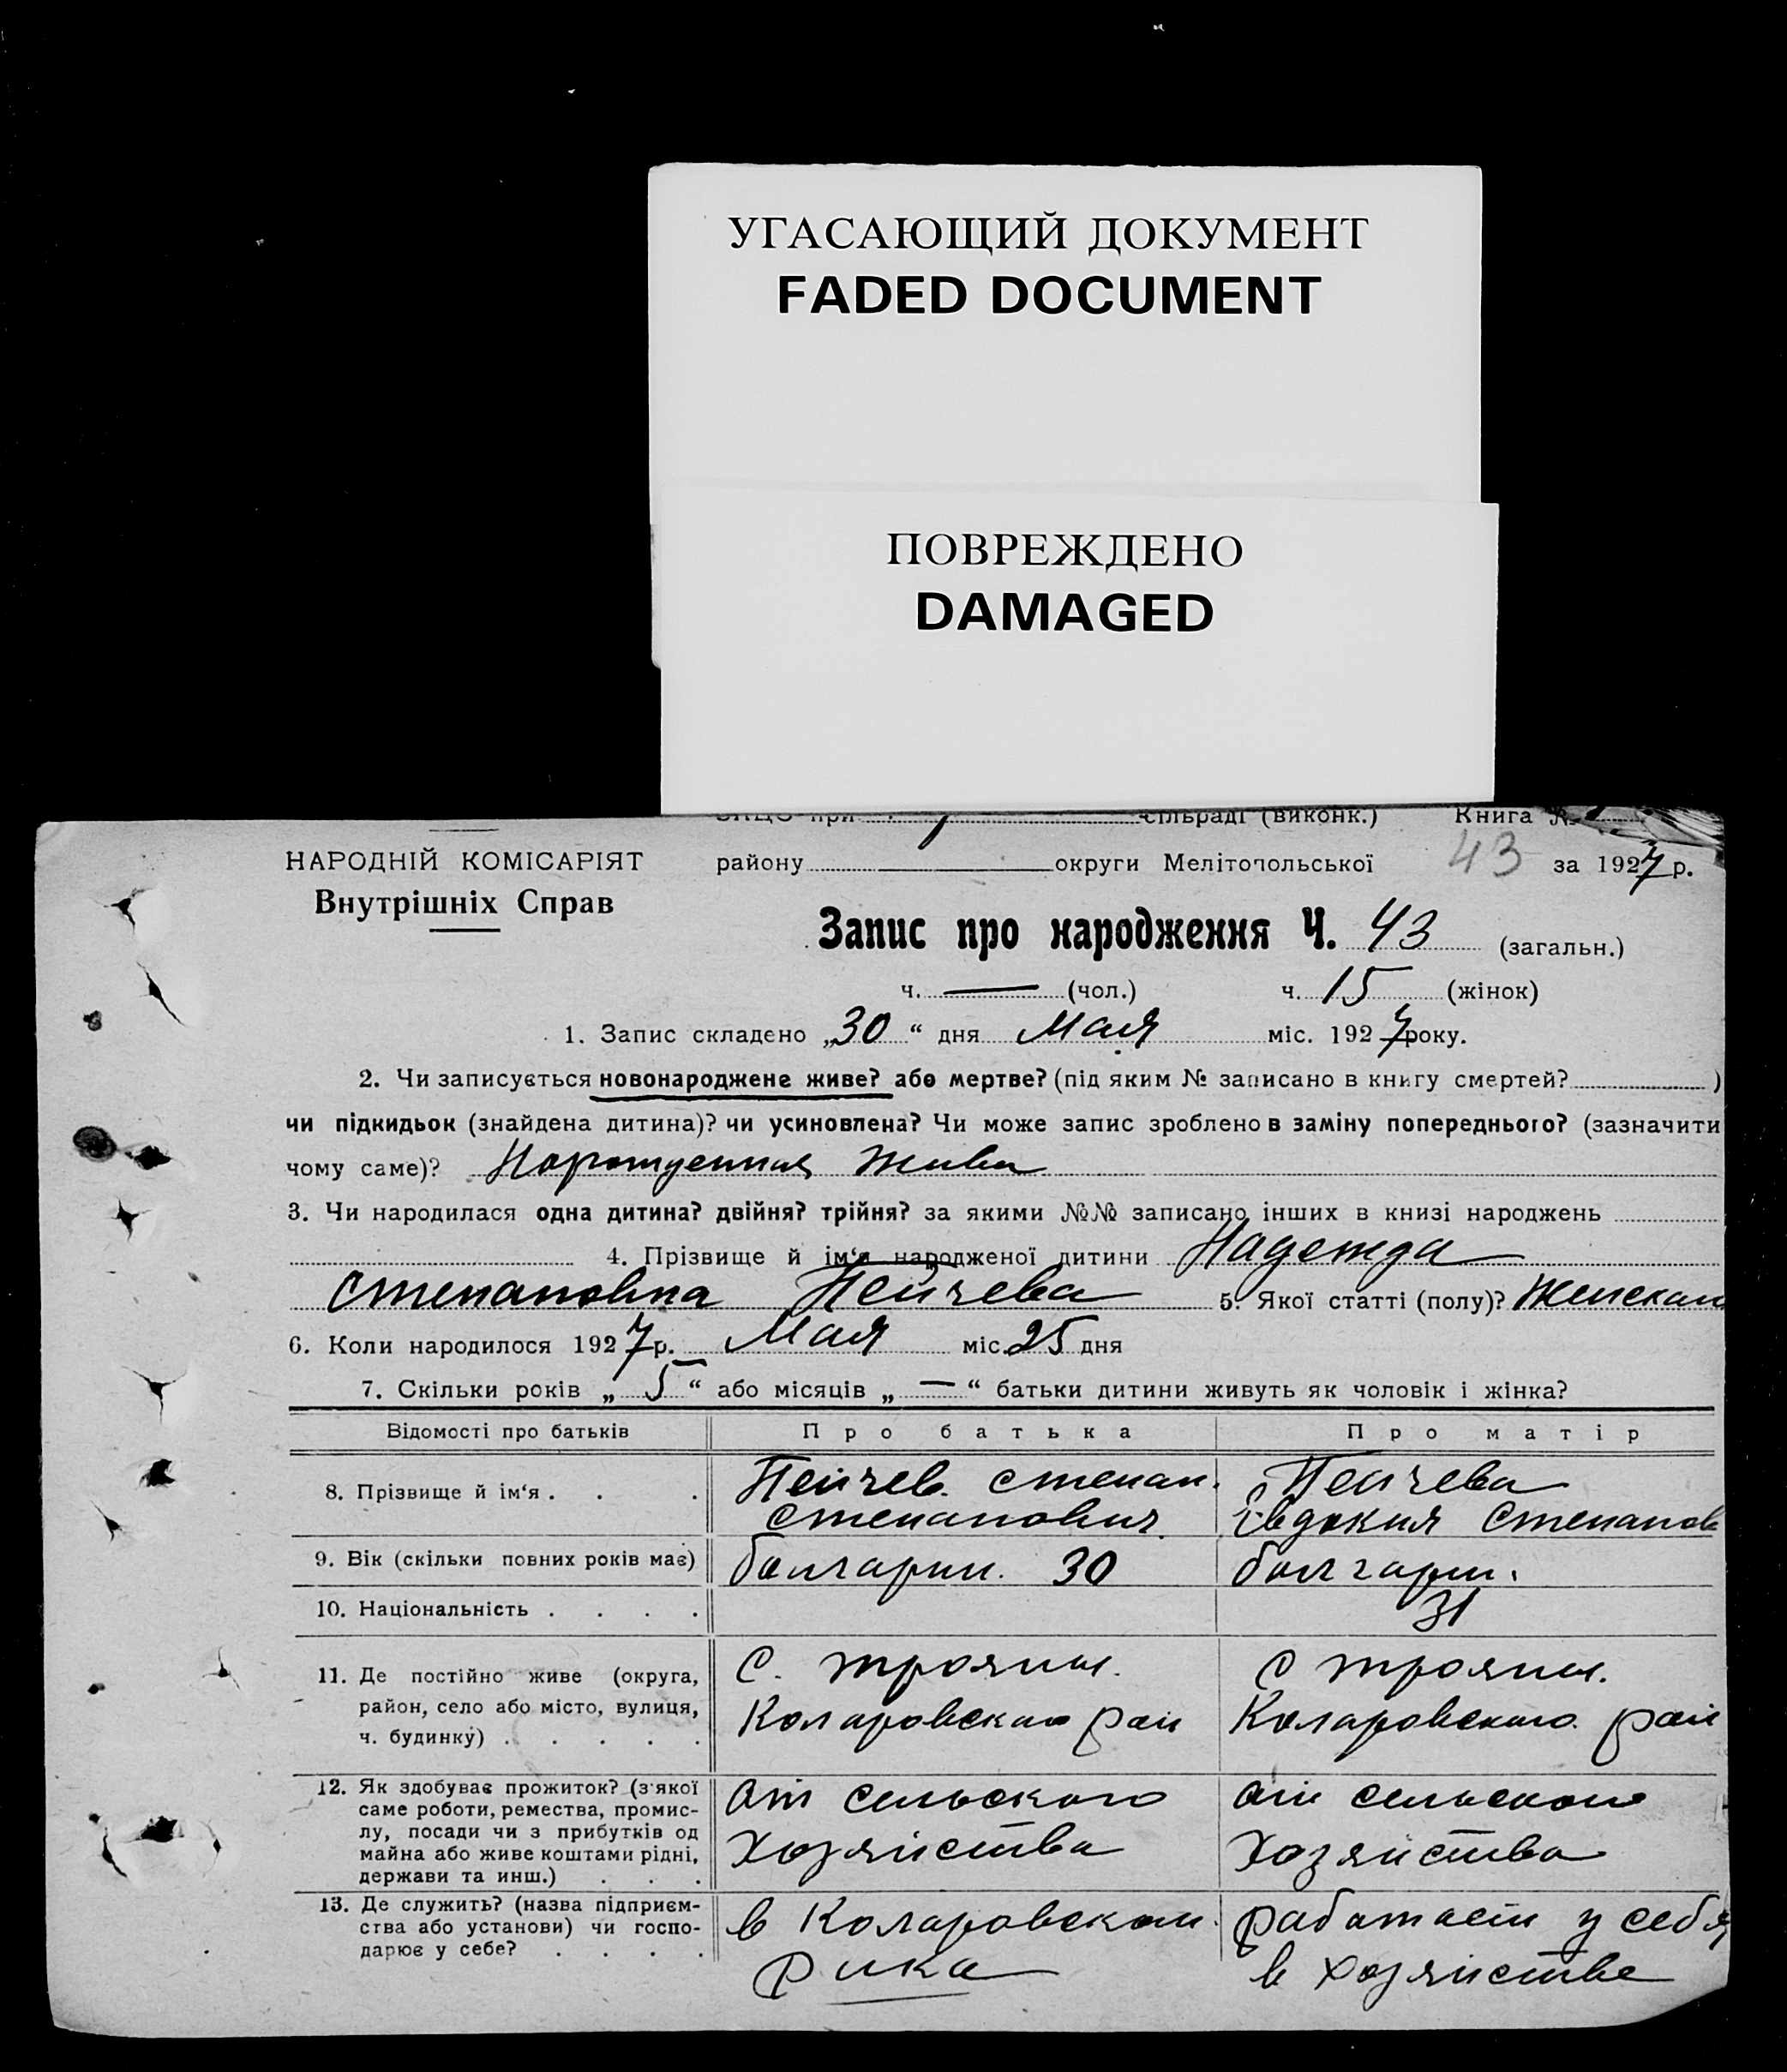 УГАСАЮЩИЙ ДОКУМЕНТ
FADED DOCUMENT
ПОВРЕЖДЕНО
DAMAGED
при сільраді (виконк.) Книга №
НАРОДНІЙ КОМІСАРІЯТ
Внутрішніх Справ
району округи Мелітопольської 43 за 1927 р.
Запис про народження Ч. 43 (загальн.)
ч. — (чол.) ч. 15 (жінок)
1. Запис складено „30“ дня Мая міс. 1927 року.
2. Чи записується новонароджене живе? або мертве? (під яким № записано в книгу смертей? )
чи підкидьок (знайдена дитина)? чи усиновлена? Чи може запис зроблено в заміну попереднього? (зазначити
чому саме)? Нарожденная Жива
3. Чи народилася одна дитина? двійня? трійня? за якими №№ записано інших в книзі народжень
4. Прізвище й ім‘я народженої дитини Надежда
Степановна Пейчева 5. Якої статті (полу)? Женская
6. Коли народилося 1927 р. Мая міс. 25 дня
7. Скільки років „ 5 “ або місяців „ — “ батьки дитини живуть як чоловік і жінка?
Відомості про батьків Про батька Про матір
8. Прізвище й ім‘я . . . Пейчев. Степан. Пейчева
Степанович. Евдокия Степанов
9. Вік (скільки повних років має) болгарин. 30 болгарин.
10. Національність . . . . 31
11. Де постійно живе (округа, район, село або місто, вулиця, ч. будинку) . . . . . с. трояны. с трояны.
Коларовского рай Коларовского рай
12. Як здобуває прожиток? (з якої саме роботи, ремества, промислу, посади чи з прибутків од майна або живе коштами рідні, держави та инш.) . . . от сельского от сельского
хозяйства хозяйства
13. Де служить? (назва підприємства або установи) чи господарює у себе? . . . . в Коларовском. работает у себя
Рика в хозяйстве